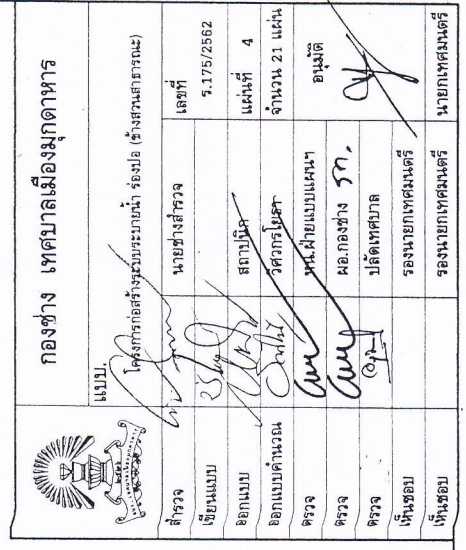 กองช่าง เทศบาลเมืองมุกดาหาร
แบบ.
โครงการก่อสร้างระบบระบายน้ำ ร่องปอ (ข้างสวนสาธารณะ)
สำรวจ นายช่างสำรวจ เลขที่
เขียนแบบ ร.175/2562
ออกแบบ สถาปนิก แผ่นที่ 4
ออกแบบคำนวณ วิศวกรโยธา จำนวน 21 แผ่น
ตรวจ หน.ฝ่ายแบบแผนฯ อนุมัติ
ตรวจ ผอ.กองช่าง
ตรวจ ปลัดเทศบาล
เห็นชอบ รองนายกเทศมนตรี
เห็นชอบ รองนายกเทศมนตรี นายกเทศมนตรี